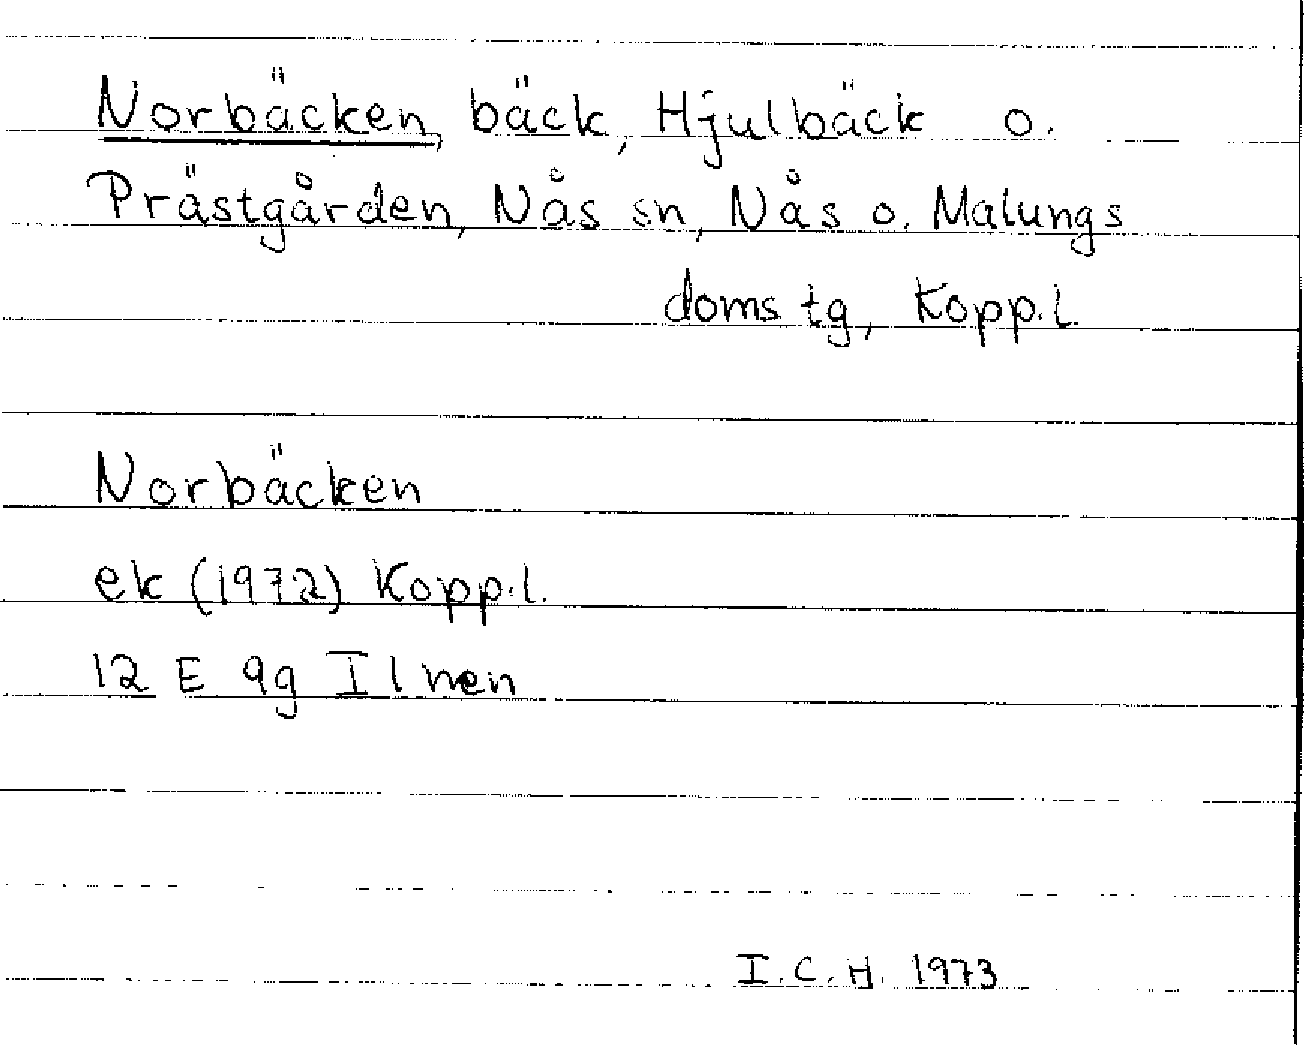 Norbäcken, bäck, Hjulbäck o.
Prästgården, Nås sn, Nås o. Malungs
doms tg, Kopp.l.
Norbäcken
ek (1972) Kopp.l.
12 E 9g Ilnen
I.C.H. 1973